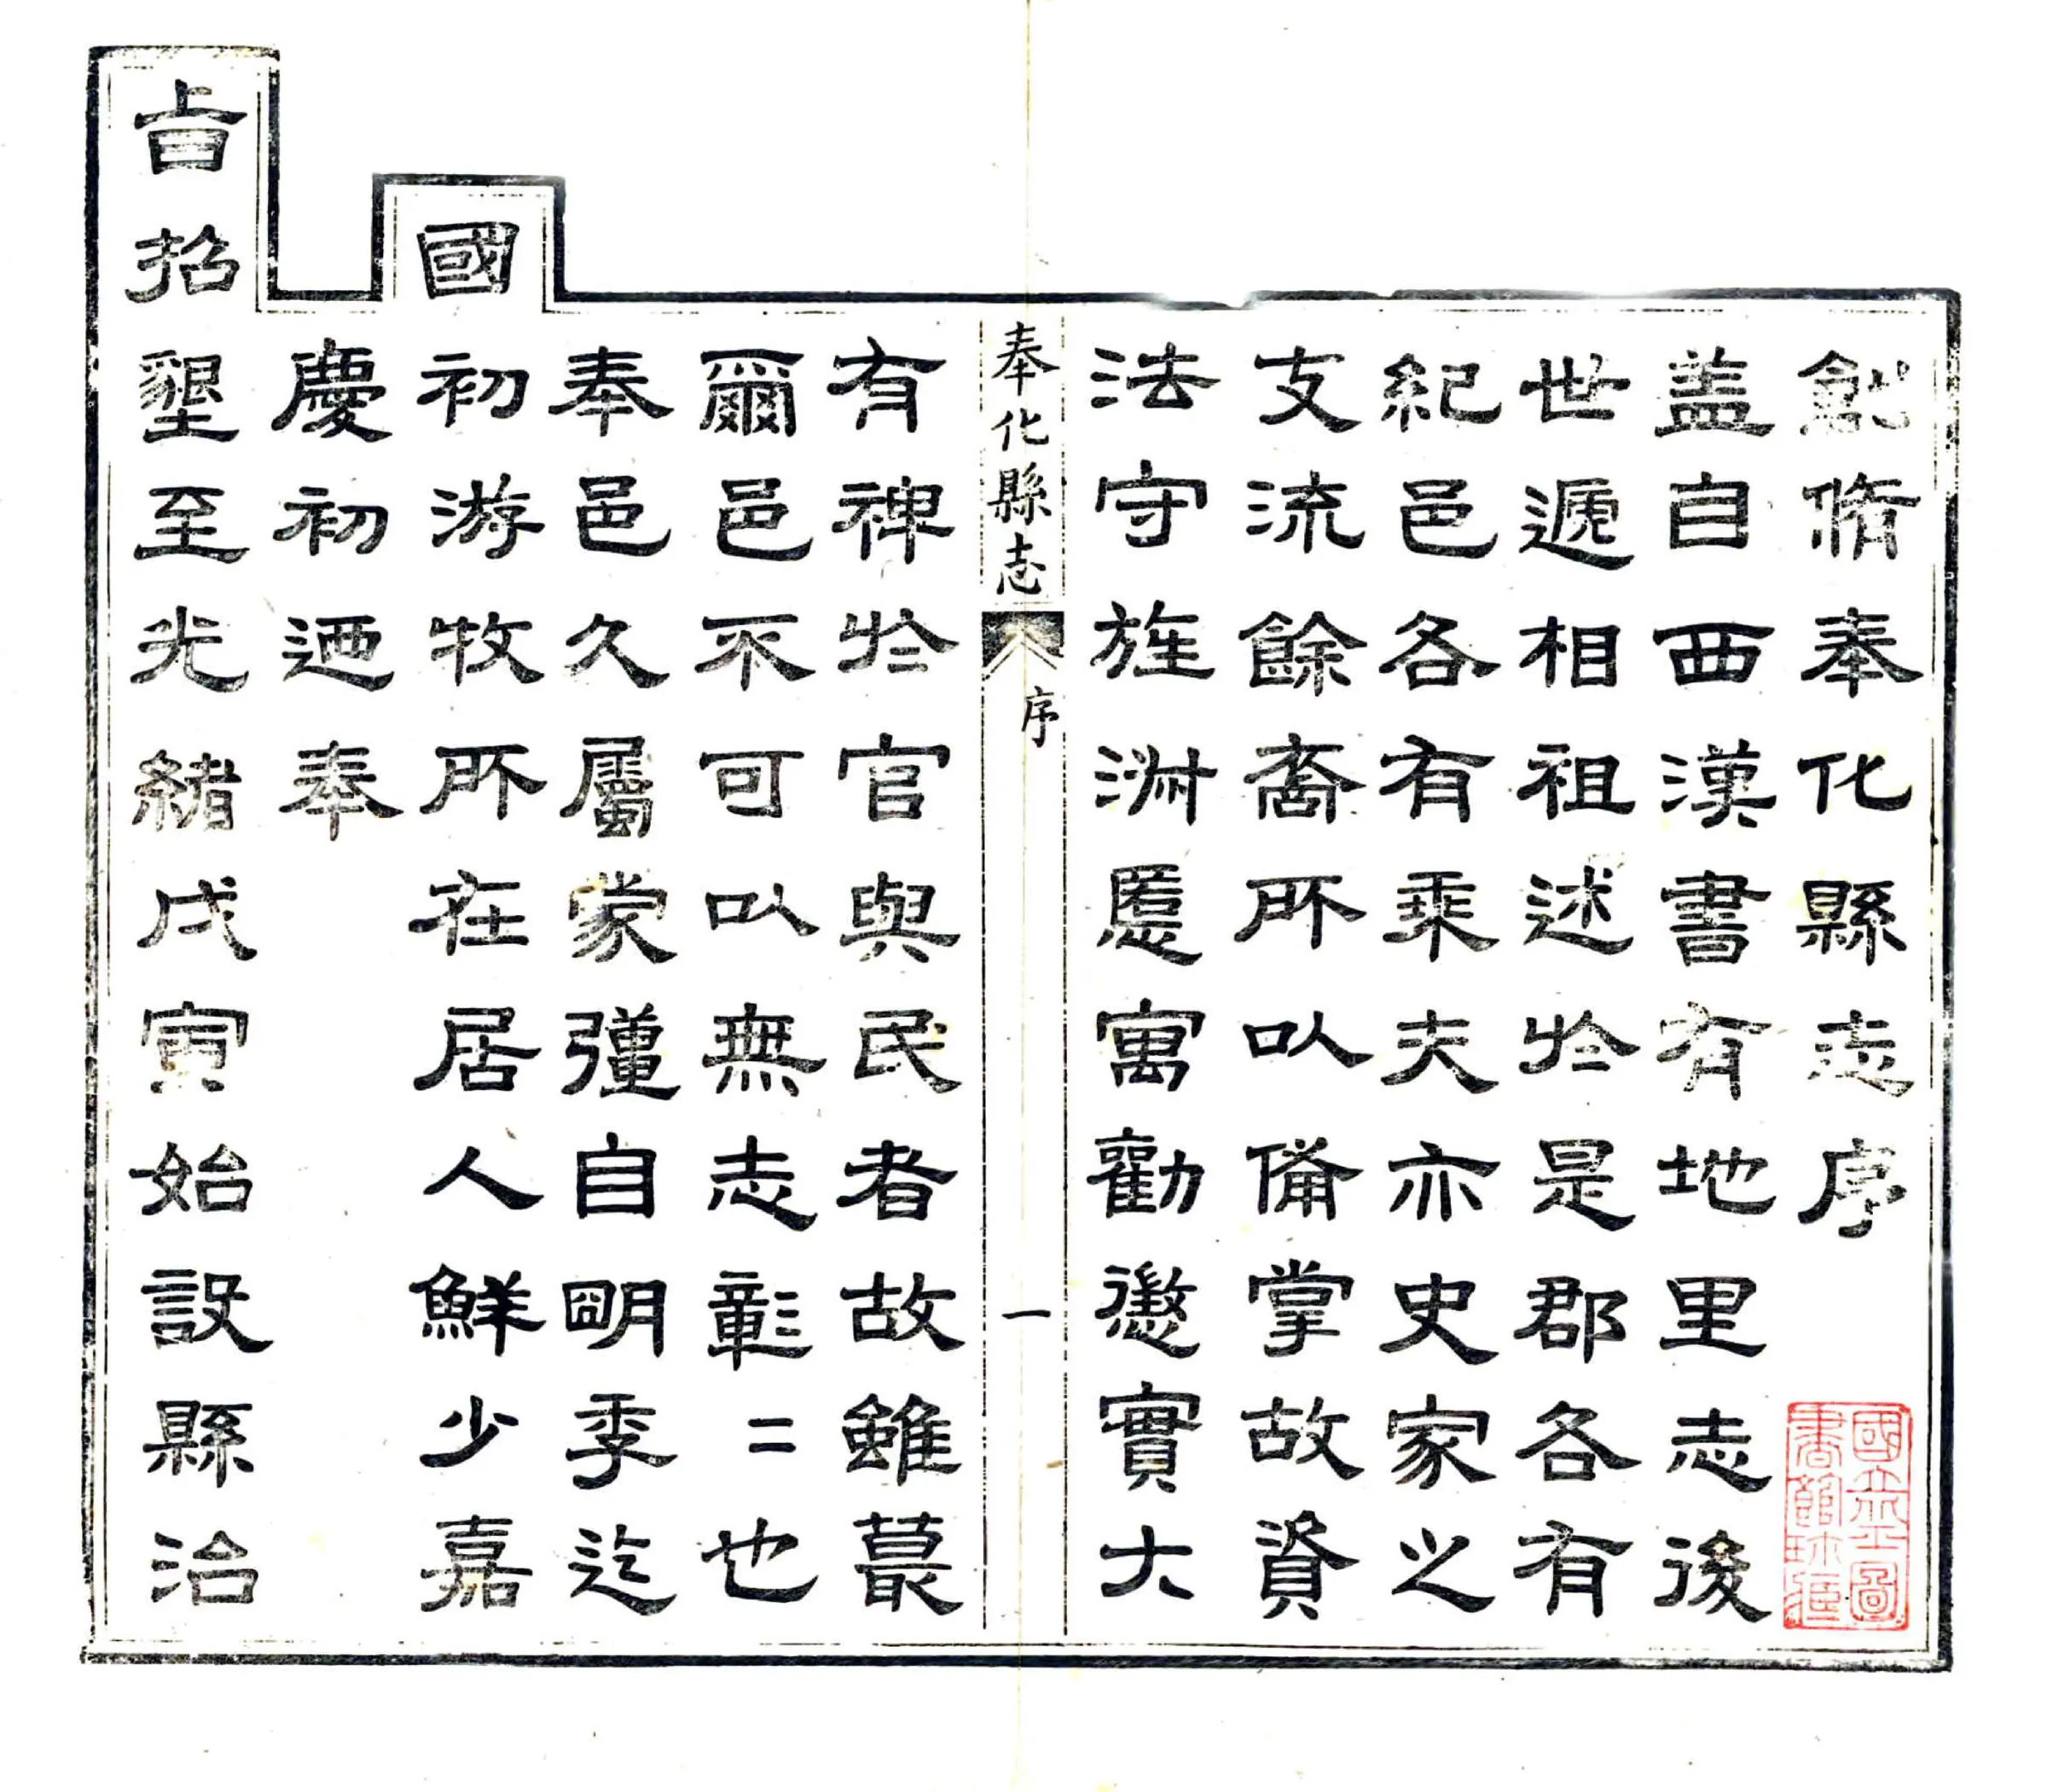 創脩奉化縣志序
盖自西漢書有地里志後
世遞相祖述於是郡各有
紀邑各有乘夫亦史家之
支流餘裔所以俻掌故資
法守旌淑慝寓勸懲實大
奉化縣志
序
一
有裨於官與民者故雖蕞
爾邑不可以無志彰二也
奉邑久屬蒙疆自明季迄
國初游牧所在居人鮮少嘉
慶初迺奉
旨招墾至光緒戊寅始設縣治
國立圖
書館珍藏